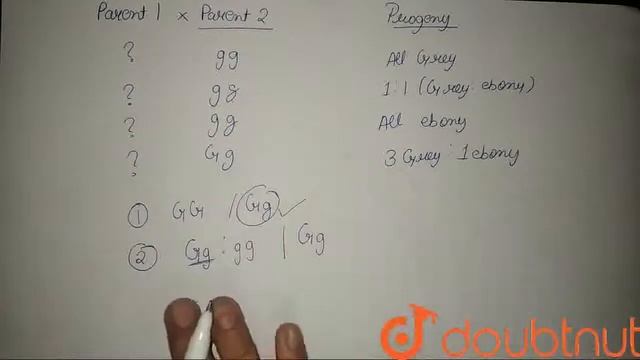 Parent 1 x Parent 2 Progeny
? gg All Grey
? gg 1:1 (Grey: ebony)
? gg All ebony
? Gg 3 Grey : 1 ebony
① GG / Gg ✓
② Gg : gg | Gg
doubtnut